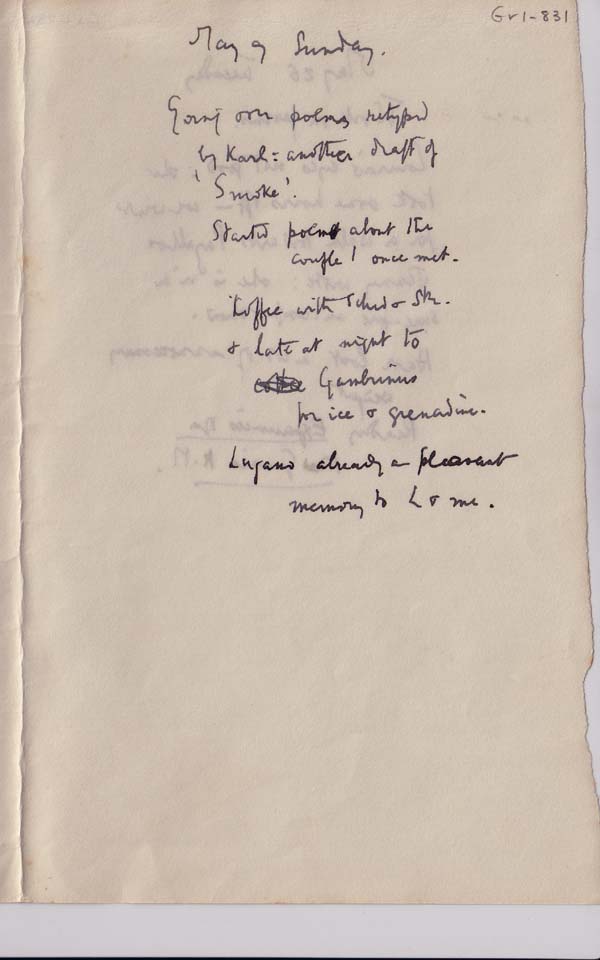 Gr1-831
May 9 Sunday.
Going over poems retyped
by Karl = another draft of
'Smoke'.
Started poem about the
couple I once met.
Koffee with & Str.
& late at night to
Gambrinus
for ice & grenadine.
Lugano already a pleasant
memory to L & me.